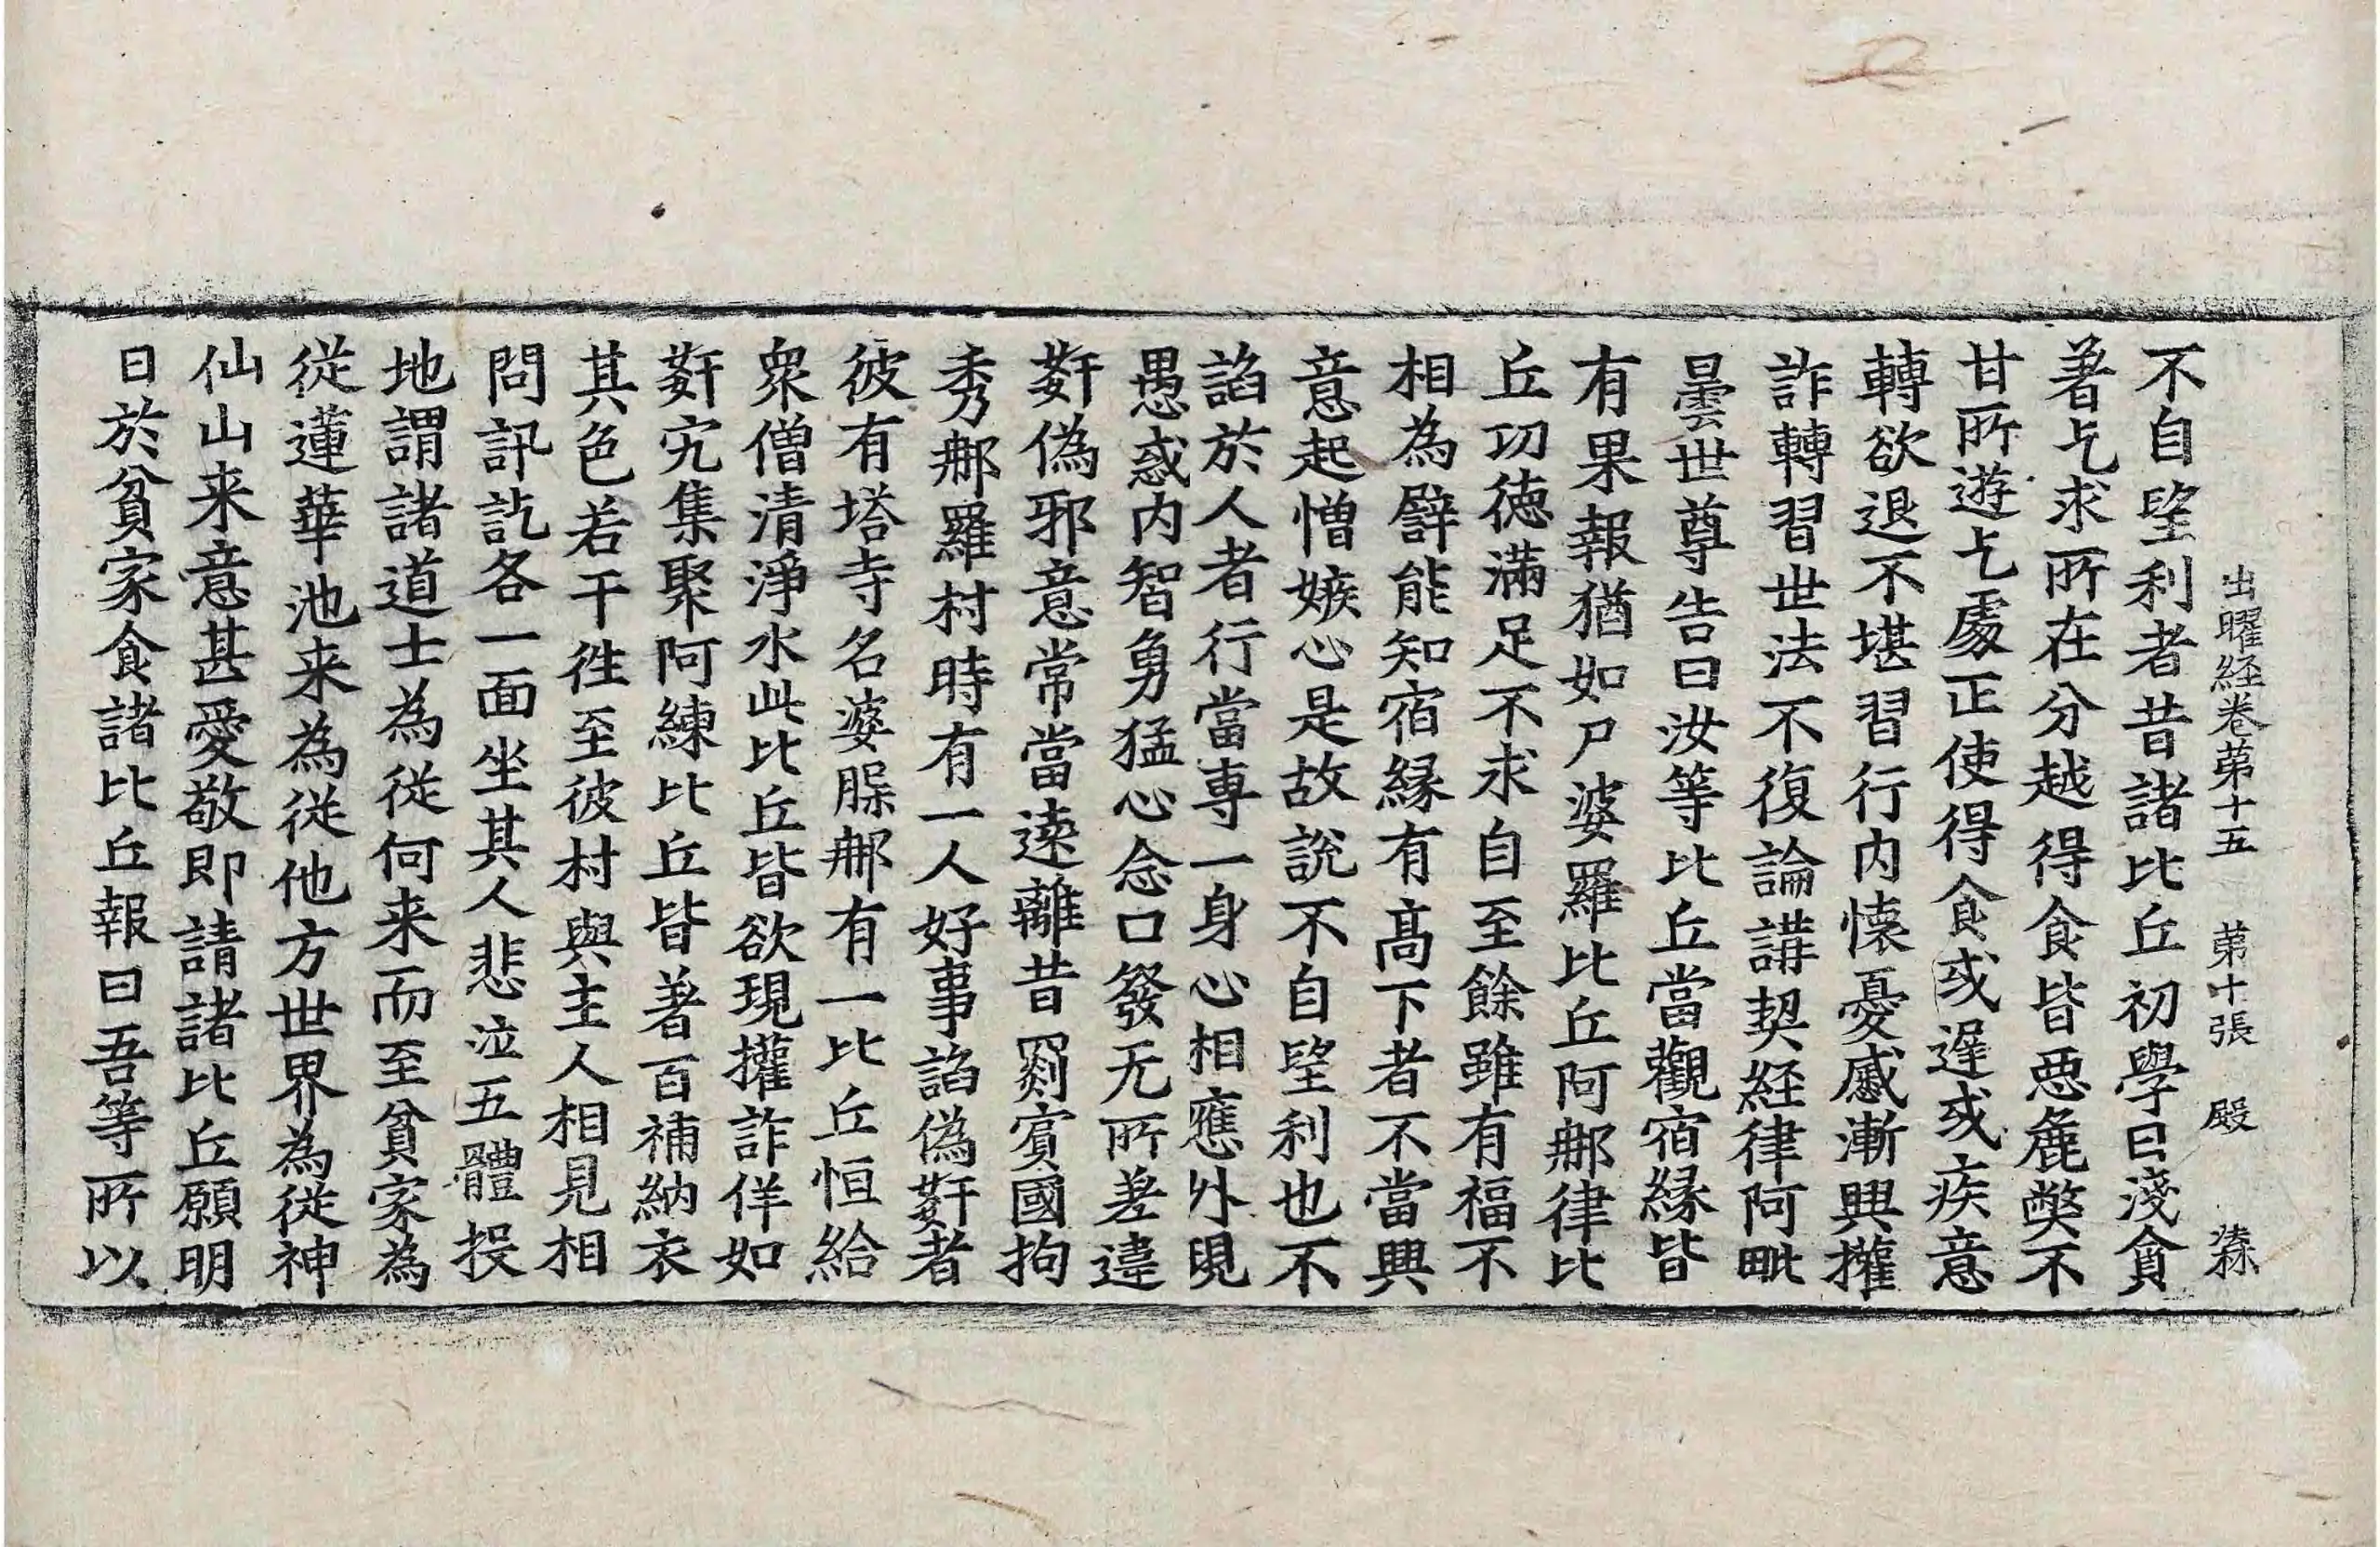 出曜経卷苐十五 苐十張 殿
不自望利者昔諸比丘初學曰淺貪
著乞求所在分越得食皆惡麁弊不
甘所遊乞處正使得食或遲或疾意
轉欲退不堪習行内懐憂慼漸興權
詐轉習世法不復論講契経律阿毗
曇世尊告曰汝等比丘當觀宿縁皆
有果報猶如尸婆羅比丘阿那律比
丘功徳滿足不求自至餘雖有福不
相為譬能知宿縁有髙下者不當興
意起憎嫉心是故說不自望利也不
謟於人者行當専一身心相應外現
愚惑内智勇猛心念口發无所差違
姧偽邪意常當遠離昔罽賔國拘
秀那羅村時有一人好事謟偽姧者
彼有塔寺名婆𦛨那有一比丘恒給
衆僧清淨水此比丘皆欲現權詐佯如
姧宄集聚阿練比丘皆著百補納衣
其色若干徃至彼村與主人相見相
問訊訖各一面坐其人悲泣五體投
地謂諸道士為從何来而至貧家為
從蓮華池来為從他方世界為從神
仙山来意甚愛敬即請諸比丘願明
日於貧家食諸比丘報曰吾等所以